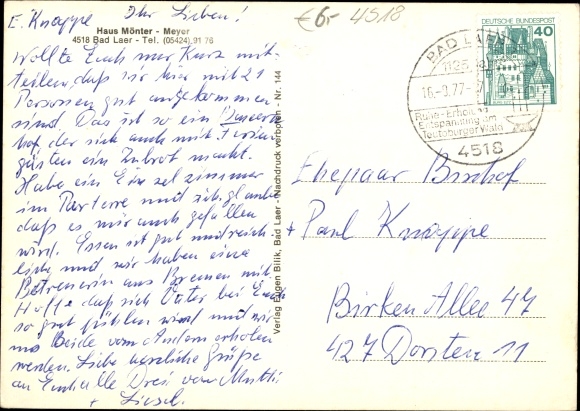 E. Knappe Ihr Lieben!
€6,- 4518
Haus Mönter - Meyer
4518 Bad Laer - Tel. (05424) 91 76
Wollte Euch nur kurz mit-
teilen, daß wir hier mit 21
Personen gut angekommen
sind. Das ist so ein Bauern-
hof, der sich auch mit Ferien-
gästen ein Zubrot macht.
Habe ein Einzelzimmer
im Parterre und ich glaube
daß es mir auch gefallen
wird. Essen ist gut und reich-
lich und wir haben eine
Betreuerin aus Bremen mit.
Hoffe daß sich Vater bei Euch
so gut fühlen wird und wir
uns Beide vom Andern erholen
werden. Liebe herzliche Grüße
an Euch alle Drei von Mutti
+ Liesel.
Verlag Eugen Bilik, Bad Laer - Nachdruck verboten - Nr. 144
DEUTSCHE BUNDESPOST
40
BAD LAER
16.-9.77
Ruhe - Erholung
Entspannung am
Teutoburger Wald
4518
Ehepaar Bischof
+ Paul Knappe
Birken Allee 47
427 Dorsten 11